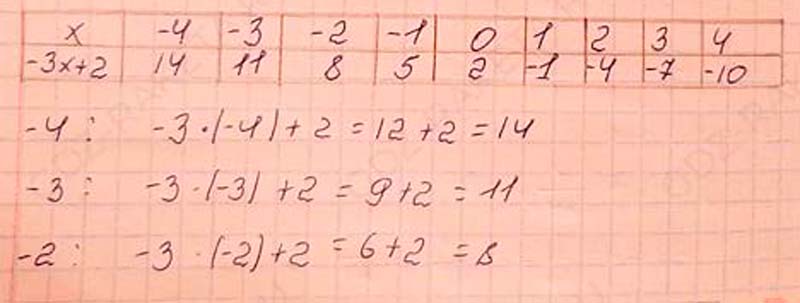 x -4 -3 -2 -1 0 1 2 3 4
-3x+2 14 11 8 5 2 -1 -4 -7 -10
-4: -3·(-4)+2=12+2=14
-3: -3·(-3)+2=9+2=11
-2: -3·(-2)+2=6+2=8